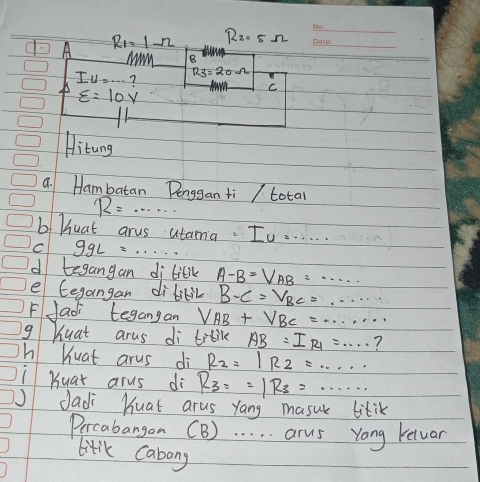 No:
Date:
R1 = 1 Ω R2 = 5 Ω
1. A B
R3 = 20 Ω
IU = ...? C
ε = 10 V
Hitung
a. Hambatan Pengganti / total
R = ......
b Kuat arus utama = IU = .....
c ggL = ......
d tegangan di titik A-B = VAB = .....
e tegangan di titik B-C = VBC = ......
F Jadi tegangan VAB + VBC = .......
g Kuat arus di titik AB = IR1 = ....?
h Kuat arus di R2 = IR2 = .....
i Kuat arus di R3 = = IR3 = ......
J Jadi Kuat arus yang masuk titik
Percabangan (B) ..... arus yang keluar
titik Cabang